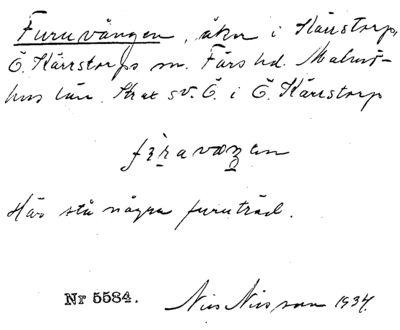 Furuvången, åker i Kärrstorp,
Ö. Kärrstorps sn. Färs hd. Malmö-
hus län. Strax sv. Ö. i Ö. Kärrstorp
Här stå några furuträd.
Nr 5584. Nils Nilsson 1934.